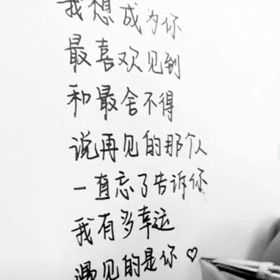 我想成为你
最喜欢见到
和最舍不得
说再见的那个人
一直忘了告诉你
我有多幸运
遇见的是你♡